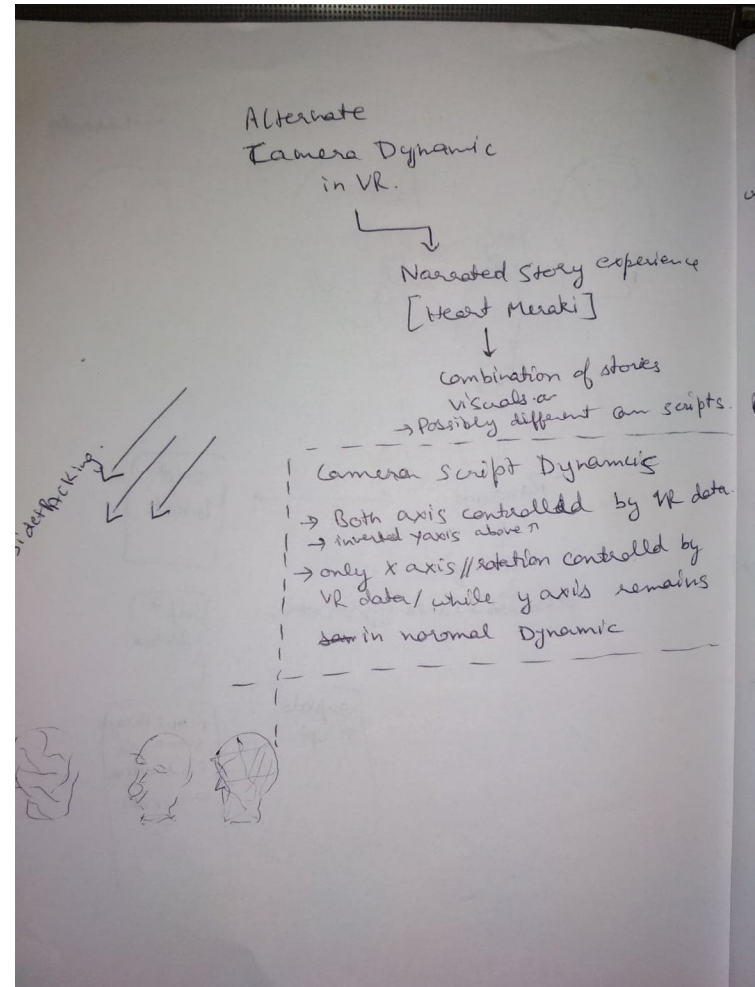 Alternate
Camera Dynamic
in VR.
Narrated Story experience
[Heart Meraki]
Combination of stories
visuals
→ Possibly different cam scripts.
Camera Script Dynamics
→ Both axis controlled by VR data.
→ inverted y axis above
→ only x axis//rotation controlld by
VR data/ while y axis remains
in noromal Dynamic